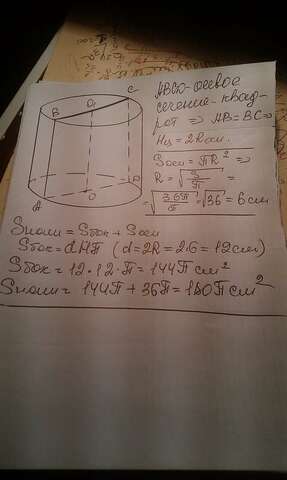 ABCD-осевое
сечение-квад-
рат ⇒ AB=BC⇒
Hц = 2Rосн.
Sосн = πR² ⇒
R = √(S/π) =
= √(36π/π) = √36 = 6 см
C
O₁
B
A
O
D
Sполн = Sбок + Sосн
Sбок = dHπ (d=2R=2·6=12см)
Sбок = 12·12·π = 144π см²
Sполн = 144π + 36π = 180π см²